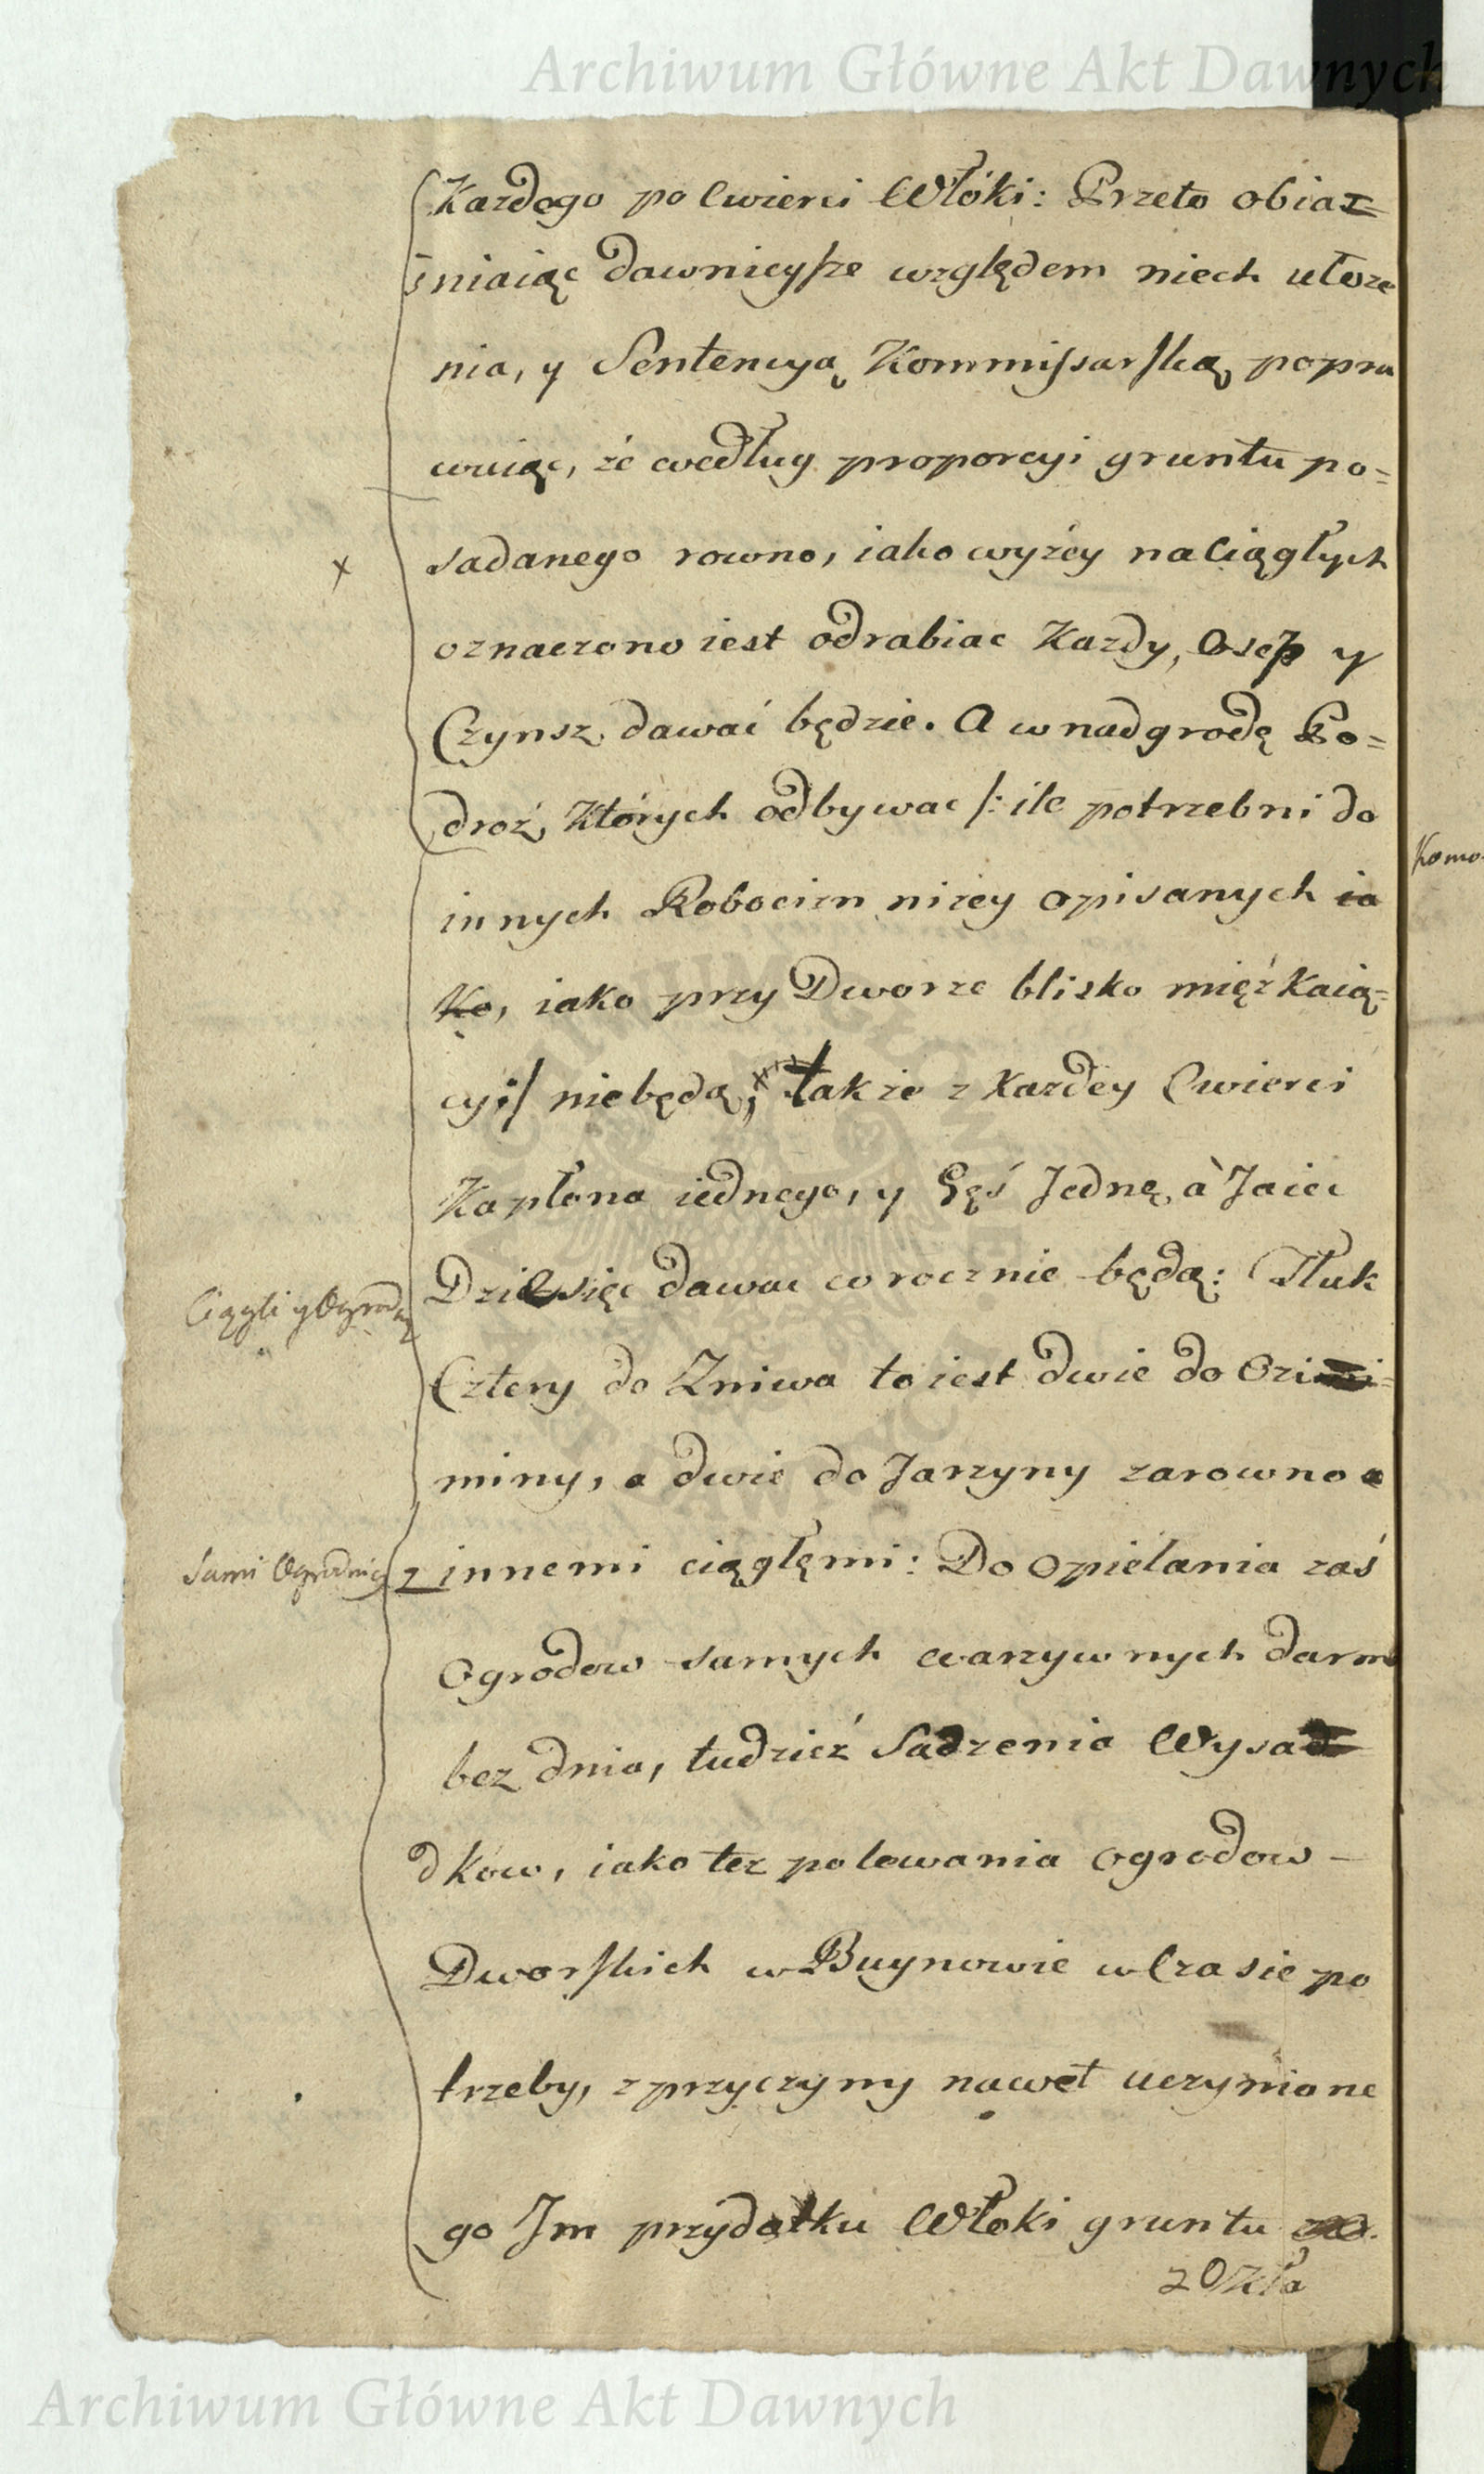 Archiwum Główne Akt Dawnych
Kazdego po Cwierci Włóki: Przeto obia
śniaiąc dawnieysze względem niech ułoze
nia, y Sentencyą Kommissarską popra
wuiąc, źe według proporcyi gruntu po=
x
sadanego rowno, iako wyźey na Ciągłych
oznaczono iest odrabiac Kazdy, Osep y
Czynsz dawać będzie. A w nadgrodę Po=
droź, Których odbywac /: ile potrzebni do
Komo
innych Robocizn niżey opisanych ia
ko, iako przy Dworze blisko mięźkaią=
cy :/ niebędą; także z Kazdey Cwierci
Kapłona iednego, y Gęś Jednę, à Jaiec
Dziesięc dawac corocznie będą: Tłuk
Ciągli y Ogrod
Cztery do Zniwa to iest dwie do Ozi
miny, a dwie do Jarzyny zarowno
Sami Ogrodnicy
z innemi ciągłemi: Do opielania zaś
Ogrodow samych warzywnych darmo
bez dnia, tudzież Sadzenia Wysa
dkow, iako tez polewania ogrodow –
Dworskich w Buynowie w Czasie po
trzeby, z przyczyny nawet uczynione
go Im przydatku Włoki gruntu
Archiwum Główne Akt Dawnych